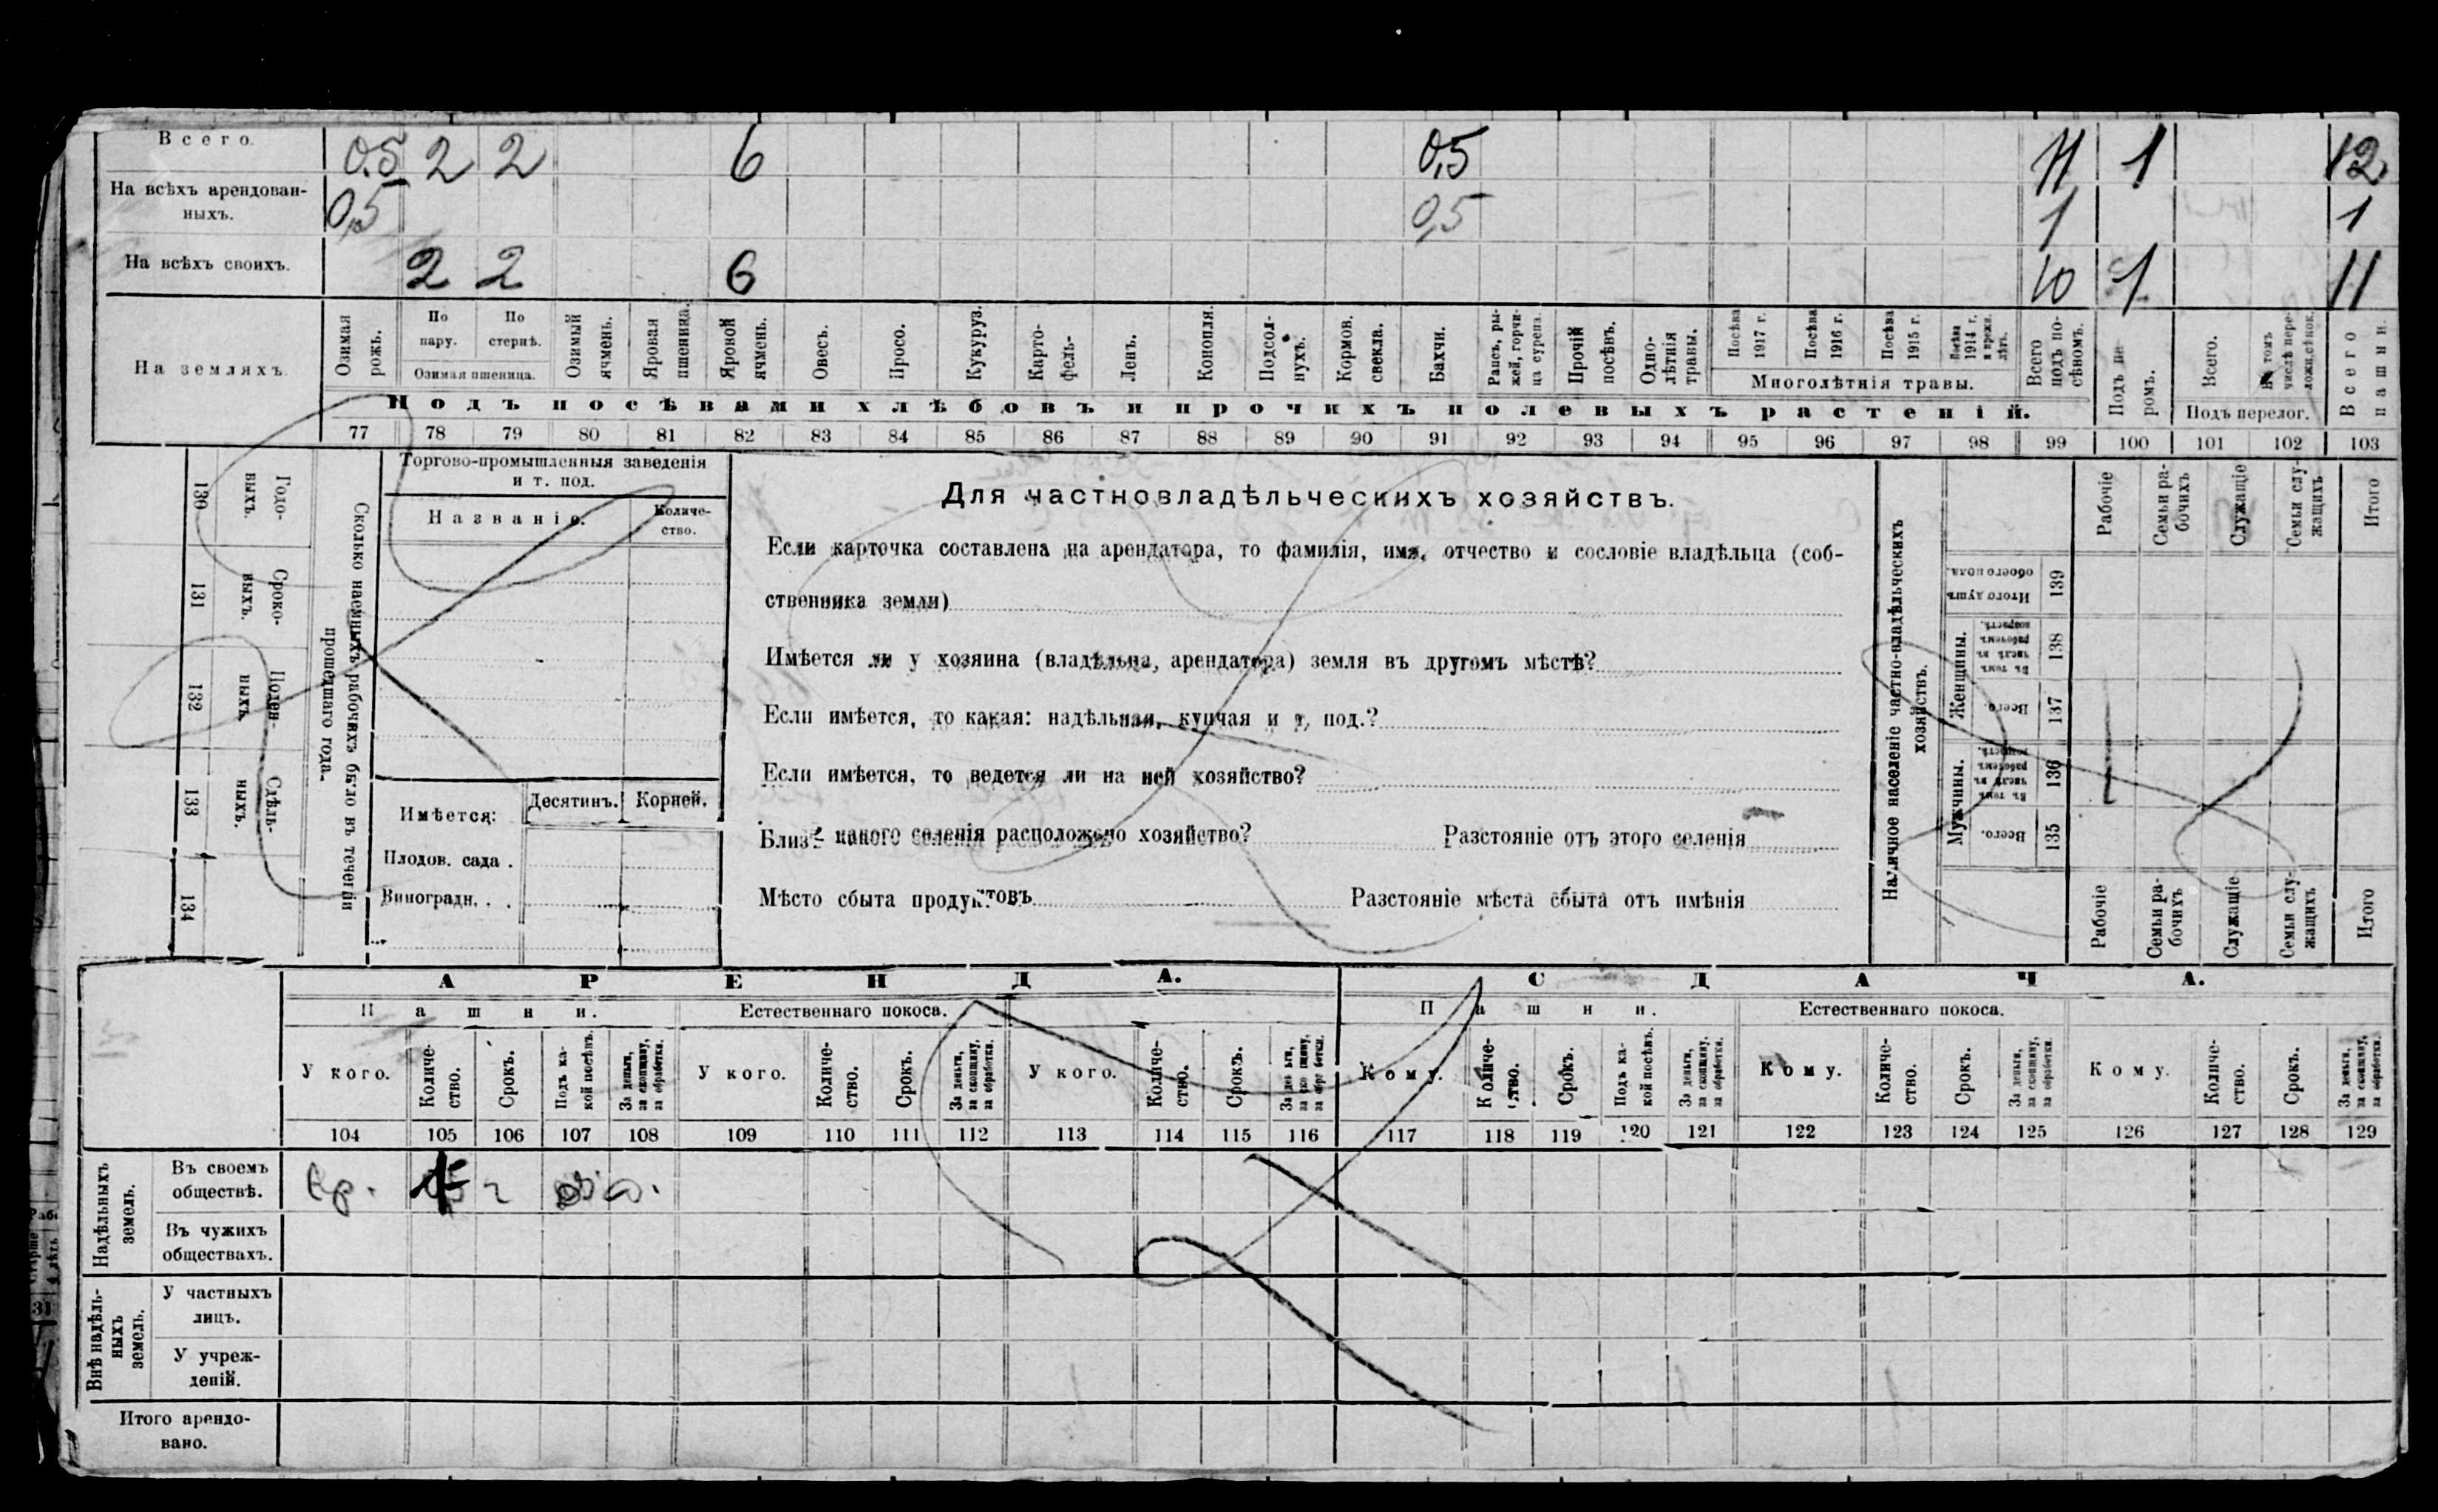 Всего. 0.5 2 2 6 0,5 11 1 12
На всѣхъ арендован-
ныхъ. 0,5 0,5 1 1
На всѣхъ своихъ. 2 2 6 10 1 11
На земляхъ.
Озимая рожь.
По пару.
По стернѣ.
Озимая пшеница.
Озимый ячмень.
Яровая пшеница.
Яровой ячмень.
Овесъ.
Просо.
Кукуруз.
Карто-
фель.
Ленъ.
Конопля.
Подсол-
нухъ.
Кормов. свекла.
Бахчи.
Рапсъ, ры-
жей, горчи-
ца сурепа.
Прочій посѣвъ.
Одно-
лѣтнія травы.
Посѣва 1917 г.
Посѣва 1916 г.
Посѣва 1915 г.
Посѣва 1914 г. и прежн. лѣтъ.
Многолѣтнія травы.
Всего подъ по-
сѣвомъ.
Подъ посѣвами хлѣбовъ и прочихъ полевыхъ растеній.
Подъ па-
ромъ.
Всего.
Въ томъ числѣ пере-
ложн.сѣнок.
Подъ перелог.
Всего пашни.
77 78 79 80 81 82 83 84 85 86 87 88 89 90 91 92 93 94 95 96 97 98 99 100 101 102 103
Сколько наемныхъ рабочихъ было въ теченіи
прошедшаго года.
Годо-
выхъ.
130
Сроко-
выхъ.
131
Поден-
ныхъ.
132
Сдѣль-
ныхъ.
133
134
Торгово-промышленныя заведенія
и т. под.
Названіе.
Количе-
ство.
Имѣется:
Десятинъ.
Корней.
Плодов. сада .
Виноградн. . .
Для частновладѣльческихъ хозяйствъ.
Если карточка составлена на арендатора, то фамилія, имя, отчество и сословіе владѣльца (соб-
ственника земли)
Имѣется ли у хозяина (владѣльца, арендатора) земля въ другомъ мѣстѣ?
Если имѣется, то какая: надѣльная, купчая и т. под.?
Если имѣется, то ведется ли на ней хозяйство?
Близъ какого селенія расположено хозяйство? Разстояніе отъ этого селенія
Мѣсто сбыта продуктовъ Разстояніе мѣста сбыта отъ имѣнія
Наличное населеніе частно-владѣльческихъ
хозяйствъ.
Мужчины.
Женщины.
Всего.
Въ томъ числѣ въ рабочемъ возрастѣ.
Всего.
Въ томъ числѣ въ рабочемъ возрастѣ.
Итого душъ обоего пола.
135 136 137 138 139
Рабочіе
Семьи ра-
бочихъ
Служащіе
Семьи слу-
жащихъ
Итого
Рабочіе
Семьи ра-
бочихъ
Служащіе
Семьи слу-
жащихъ
Итого
АРЕНДА. СДАЧА.
Пашни. Естественнаго покоса. Пашни. Естественнаго покоса.
У кого.
Количе-
ство.
Срокъ.
Подъ ка-
кой посѣвъ.
За деньги,
за скопщину,
за обработки.
У кого.
Количе-
ство.
Срокъ.
За деньги,
за скопщину,
за обработки.
У кого.
Количе-
ство.
Срокъ.
За деньги,
за скопщину,
за обработки.
Кому.
Количе-
ство.
Срокъ.
Подъ ка-
кой посѣвъ.
За деньги,
за скопщину,
за обработки.
Кому.
Количе-
ство.
Срокъ.
За деньги,
за скопщину,
за обработки.
Кому.
Количе-
ство.
Срокъ.
За деньги,
за скопщину,
за обработки.
104 105 106 107 108 109 110 111 112 113 114 115 116 117 118 119 120 121 122 123 124 125 126 127 128 129
Надѣльныхъ
земель.
Въ своемъ
обществѣ.
Въ чужихъ
обществахъ.
Внѣ надѣль-
ныхъ
земель.
У частныхъ
лицъ.
У учреж-
деній.
Итого арендо-
вано.